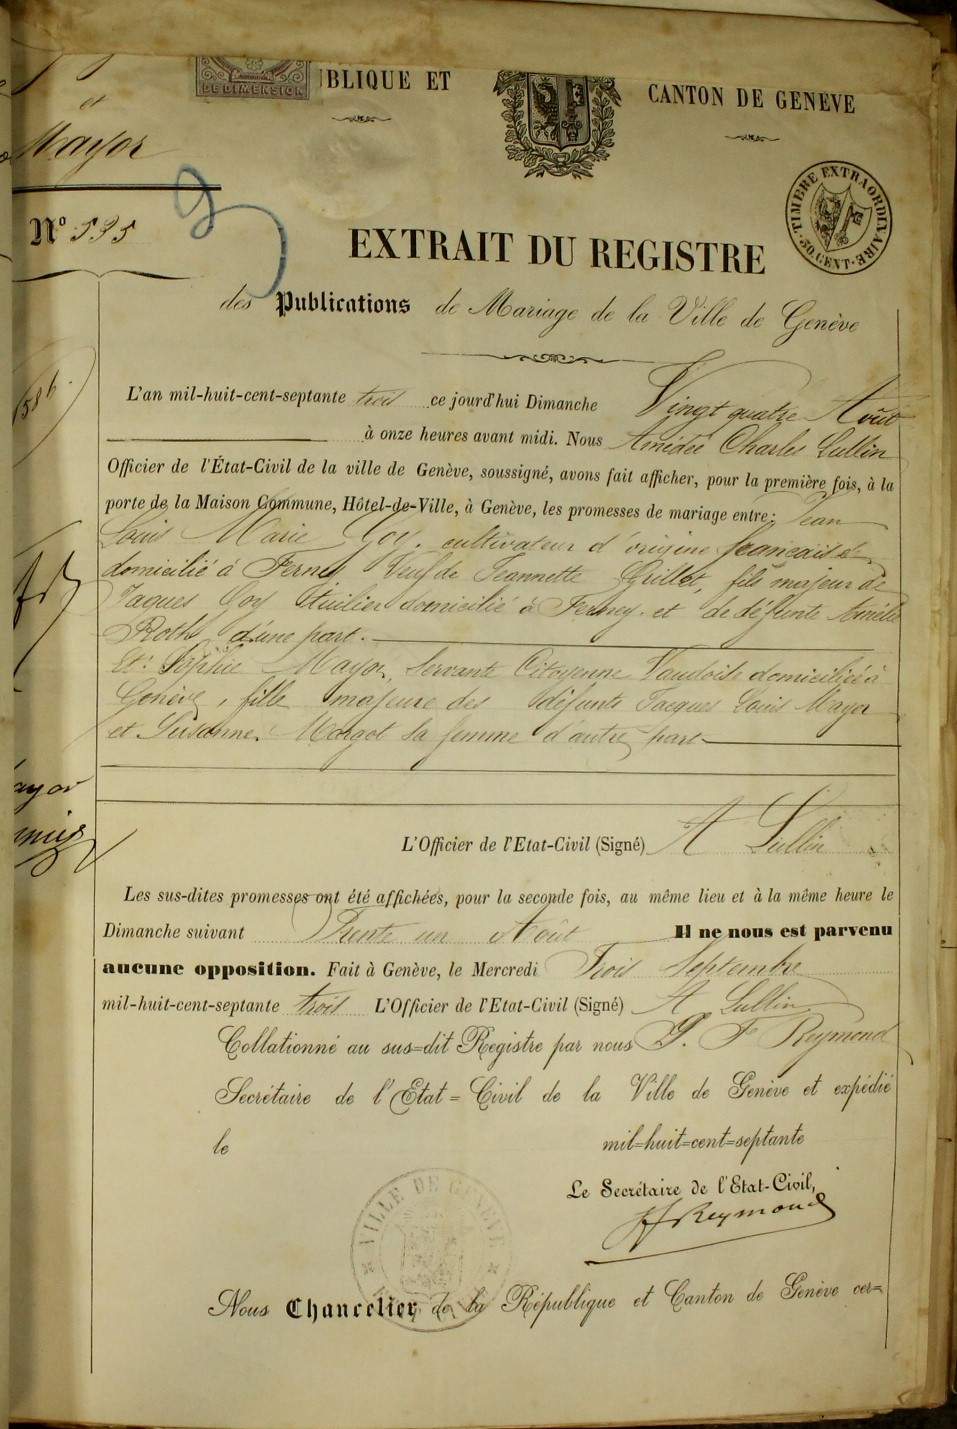 et
Mayor
DE DIMENSION
UBLIQUE ET
CANTON DE GENÈVE
TIMBRE EXTRAORDINAIRE
50. CENT.
Nº 535
EXTRAIT DU REGISTRE
des Publications de Mariage de la Ville de Genève
L'an mil-huit-cent-septante trois ce jourd'hui Dimanche Vingt quatre Août
à onze heures avant midi. Nous Amédée Charles Lullin
Officier de l'État-Civil de la ville de Genève, soussigné, avons fait afficher, pour la première fois, à la
porte de la Maison Commune, Hôtel-de-Ville, à Genève, les promesses de mariage entre: Jean
Louis Marie Goy. cultivateur d'origine française
domicilié à Ferney Veuf de Jeannette Grillet, fils majeur de
Jaques Goy tuilier domicilié à Ferney. et de défunte Amélie
Roth d'une part.
Et: Sophie Mayor, Servante Citoyenne Vaudoise domiciliée à
Genève, fille majeure des défunts Jacques Louis Mayor
et Susanne Margot sa femme d'autre part
ayor
L'Officier de l'Etat-Civil (Signé) A Lullin
Les sus-dites promesses ont été affichées, pour la seconde fois, au même lieu et à la même heure le
Dimanche suivant Trente un Août Il ne nous est parvenu
aucune opposition. Fait à Genève, le Mercredi Trois Septembre
mil-huit-cent-septante trois L'Officier de l'Etat-Civil (Signé) A Lullin
Collationné au sus=dit Registre par nous J. F Reymond
Secrétaire de l'Etat=Civil de la Ville de Genève et expédié
le mil=huit=cent=septante
Le Secrétaire de l'Etat-Civil,
JF Reymond
VILLE DE GENÈVE
Nous Chancelier de la République et Canton de Genève cer=